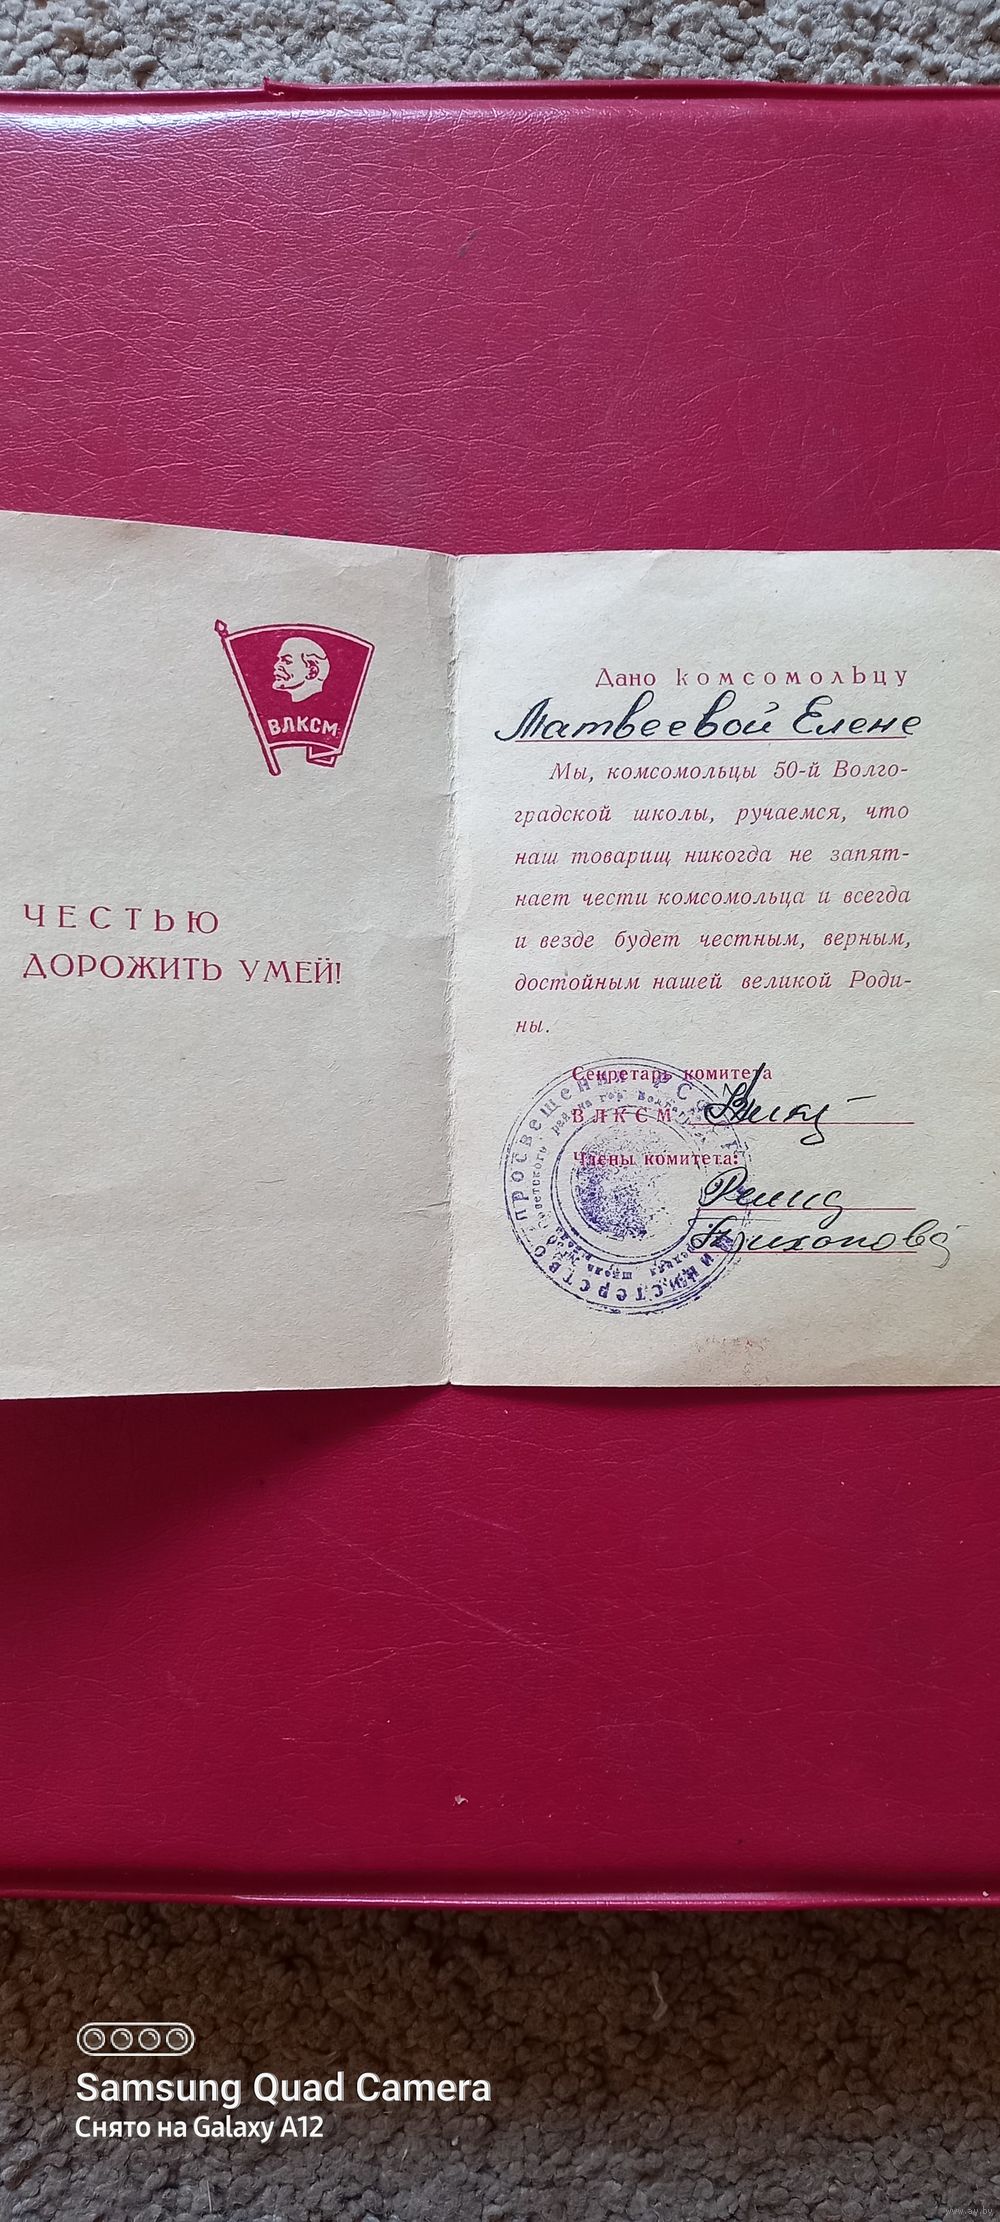 ВЛКСМ
ЧЕСТЬЮ
ДОРОЖИТЬ УМЕЙ!
Дано комсомольцу
Матвеевой Елене
Мы, комсомольцы 50-й Волго-
градской школы, ручаемся, что
наш товарищ никогда не запят-
нает чести комсомольца и всегда
и везде будет честным, верным,
достойным нашей великой Роди-
ны.
Секретарь комитета
ВЛКСМ
Члены комитета:
Министерство просвещения РСФСР
Советского района гор.
Samsung Quad Camera
Снято на Galaxy A12
www.ay.by